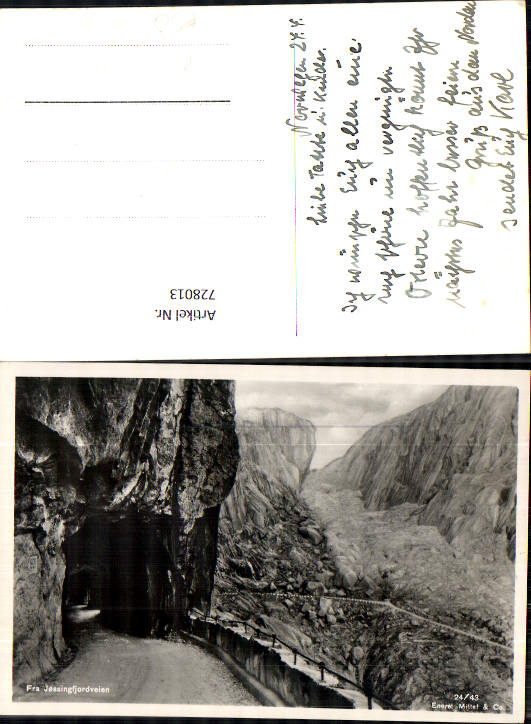 Norwegen 24.4.
Liebe Tante u. Kinder.
Ich wünsche Euch allen eine
recht schöne und vergnügte
Ostern hoffentlich könnt Ihr
nächstes Jahr besser feiern
Gruß aus dem Norden
sendet Euch Karl
Artikel Nr.
728013
Fra Jøssingfjordveien
24/43
Eneret Mittet & Co